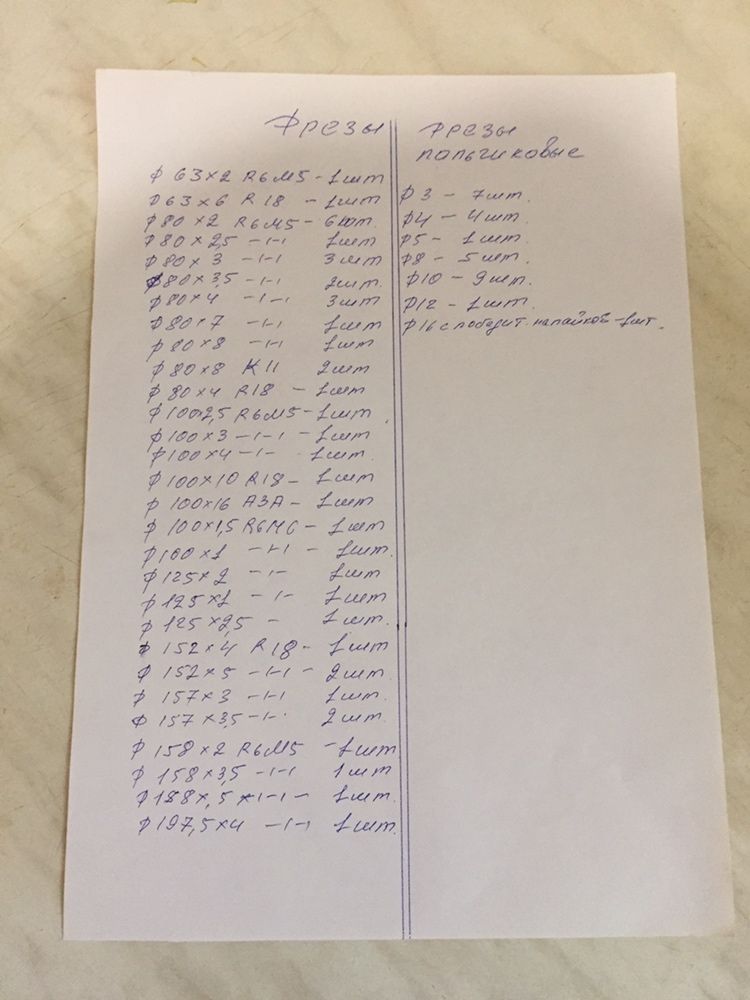 Фрезы
ф 63×2 R6M5 - 1шт
ф 63×6 R18 - 1шт
ф 80×2 R6M5 - 6шт.
ф 80×2,5 -〃- 1шт
ф 80×3 -〃- 3шт
ф 80×3,5 -〃- 2шт.
ф 80×4 -〃- 3шт
ф 80×7 -〃- 1шт
ф 80×8 -〃- 1шт
ф 80×8 К11 2шт
ф 80×4 R18 - 1шт
ф 100×2,5 R6M5 - 1шт
ф 100×3 -〃- 1шт
ф 100×4 -〃- 1шт.
ф 100×10 R18 - 1шт
ф 100×16 АЗА - 1шт
ф 100×1,5 R6M6 - 1шт
ф 100×1 -〃- - 1шт.
ф 125×2 -〃- 1шт
ф 125×1 -〃- 1шт
ф 125×2,5 - 1шт.
ф 152×4 R18 - 1шт
ф 152×5 -〃- - 2шт.
ф 157×3 -〃- 1шт.
ф 157×3,5 -〃- 2шт.
ф 158×2 R6M5 - 1шт
ф 158×3,5 -〃- 1шт
-〃- - 1шт.
ф 197,5×4 -〃- 1шт.
Фрезы
пальчиковые
ф 3 - 7шт.
ф 4 - 4шт.
ф 5 - 1шт.
ф 8 - 5шт.
ф 10 - 9шт.
ф 12 - 1шт.
ф 16 с победит. напайкой - 1шт.